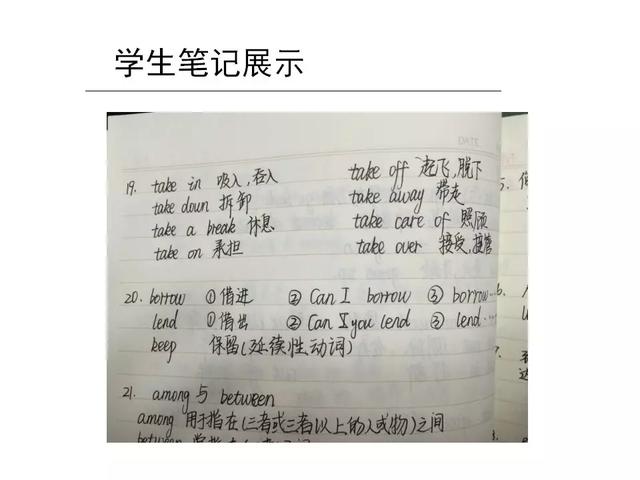 学生笔记展示
19. take in 吸入,吞入 take off 起飞,脱下
take down 拆卸 take away 带走
take a break 休息 take care of 照顾
take on 承担 take over 接受,接管
20. borrow ①借进 ② Can I borrow ③ borrow...
lend ①借出 ② Can you lend ③ lend....
keep 保留(延续性动词)
21. among 与 between
among 用于指在(三者或三者以上的人或物)之间
between